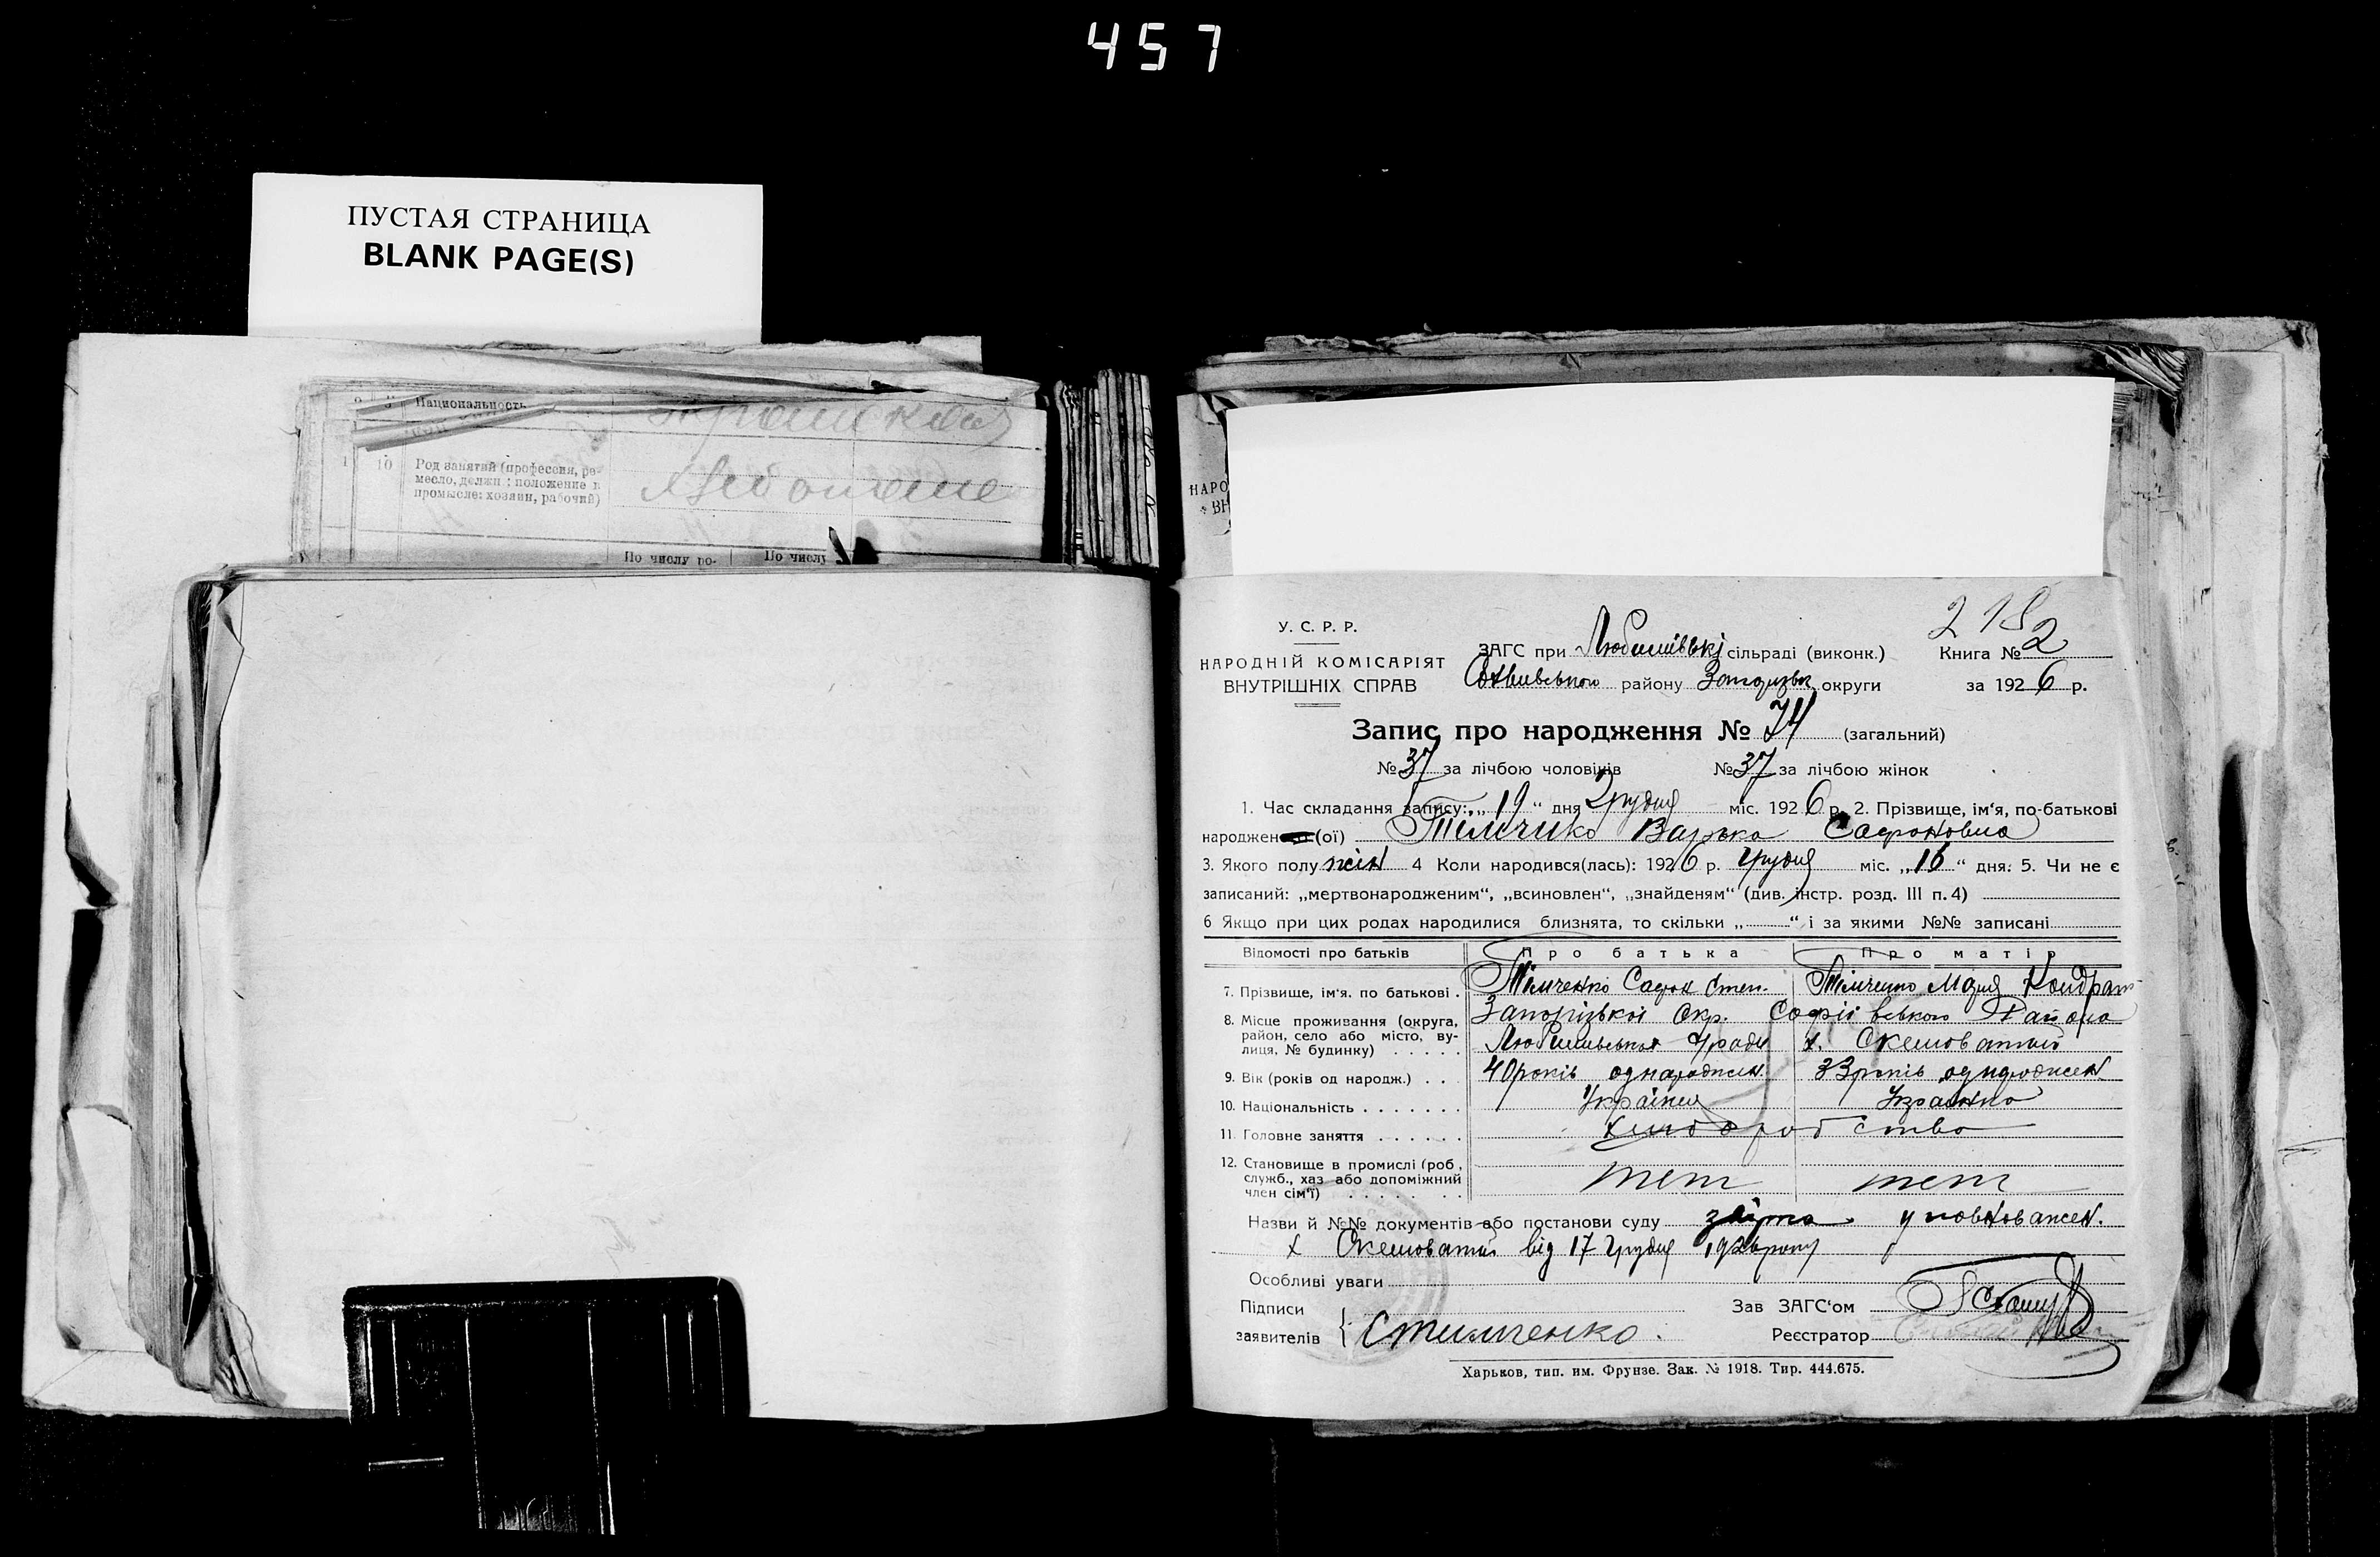 457
ПУСТАЯ СТРАНИЦА
BLANK PAGE(S)
Национальность
10 Род занятий (профессия, ре-
месло, должн.; положение в
промысле: хозяин, рабочий)
По числу ро- По числу
НАРО
ВН
У. С. Р. Р.
НАРОДНІЙ КОМІСАРІЯТ
ВНУТРІШНІХ СПРАВ
218
ЗАГС при Любимівські сільраді (виконк.) Книга № 2
району округи за 1926 р.
Запис про народження № 74 (загальний)
№ 37 за лічбою чоловіків № 37 за лічбою жінок
1. Час складання запису: „19“ дня Грудня міс. 1926 р. 2. Прізвище, ім‘я, по-батькові
народжен (ої) Тімчико Варька Сафоновна
3. Якого полу жін 4 Коли народився(лась): 1926 р. грудня міс. „16“ дня. 5. Чи не є
записаний: „мертвонародженим“, „всиновлен“, „знайденям“ (див. інстр. розд. III п. 4)
6 Якщо при цих родах народилися близнята, то скільки „ “ і за якими №№ записані
Відомості про батьків Про батька Про матір
7. Прізвище, ім‘я. по батькові . Тімченко Сафон Степ. Тімченко Мария Кондрат
8. Місце проживання (округа, район, село або місто, ву-лиця, № будинку) . . . . . Запорізької Окр. Софіівського Району
х.
9. Вік (років од народж.) . . . 40 років однароджен. 33 років однароджен
10. Національність . . . . . . . Українка
11. Головне заняття . . . . . . хліборобство
12. Становище в промислі (роб., служб., хаз або допоміжний член сім‘ї) . . . . . . .
Назви й №№ документів або постанови суду уповноважен.
х від 17 Грудня 1926 року
Особливі уваги
Підписи Зав ЗАГС‘ом
заявителів { Стимченко. Реєстратор
Харьков, тип. им. Фрунзе. Зак. № 1918. Тир. 444.675.